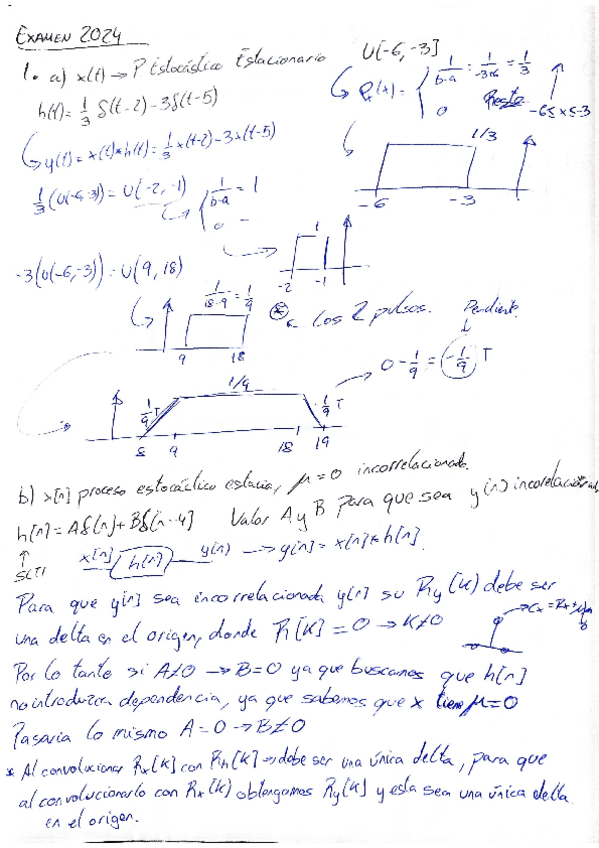 EXAMEN 2024
1. a) x(t) → P Estocástico Estacionario U[-6,-3]
h(t) = 1/3 δ(t-2) - 3δ(t-5)
Px(x) = { 1/b-a = 1/-3+6 = 1/3
0 Resto -6≤x≤-3
↳ y(t) = x(t)*h(t) = 1/3 x(t-2) - 3x(t-5)
1/3 (U(-6,-3)) = U(-2,-1)
{ 1/b-a = 1
0 -
1/3
-6 -3
1
-2 -1
-3(U(-6,-3)) = U(9,18)
1/18-9 = 1/9
9 18
* Los 2 pulsos.
Pendiente
0 - 1/9 = -1/9 T
1/9 T 1/9 -1/9 T
8 9 18 19
b) x[n] proceso estocástico estacio, μ=0 incorrelacionado.
h[n] = Aδ[n] + Bδ[n-4] Valor A y B para que sea y[n] incorrelacionado
↑
SLTI
x[n] h[n] y[n] → y[n] = x[n]*h[n].
Para que y[n] sea incorrelacionada y[n] su Ry[K] debe ser
una delta en el origen, donde R[K] = 0 → K≠0
Por lo tanto si A≠0 → B=0 ya que buscamos que h[n]
no introduzca dependencia, ya que sabemos que x tiene μ=0
Pasaria lo mismo A=0 → B≠0
* Al convolucionar Rx[K] con Rh[K] → debe ser una única delta, para que
al convolucionarlo con Rx[K] obtengamos Ry[K] y esta sea una única delta
en el origen.